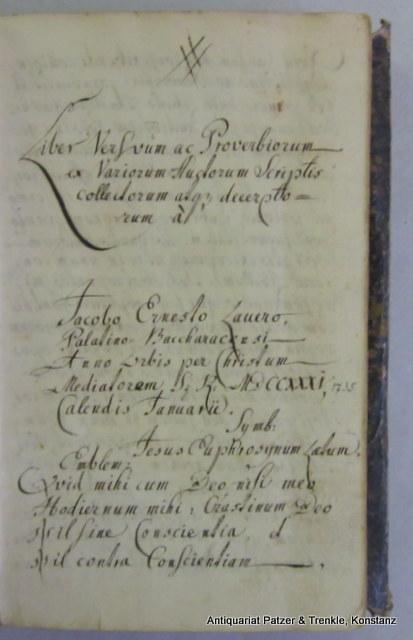 Liber Versuum ac Proverbiorum
ex Variorum Auctorum Scriptis
collectorum atq; decerpto=
rum à
Jacobo Ernesto Lauero,
Palatino-Baccharacensi
Anno orbis per Christum
Mediatorem MDCCXXXI, 1735
Calendis Januarii.
Symb:
Jesus Euphrosynum Lætum.
Emblem:
Qvid mihi cum Deo nisi meo
Hodiernum mihi: Crastinum Deo
Nil sine Conscientia, et
Nil contra Conscientiam
Antiquariat Patzer & Trenkle, Konstanz